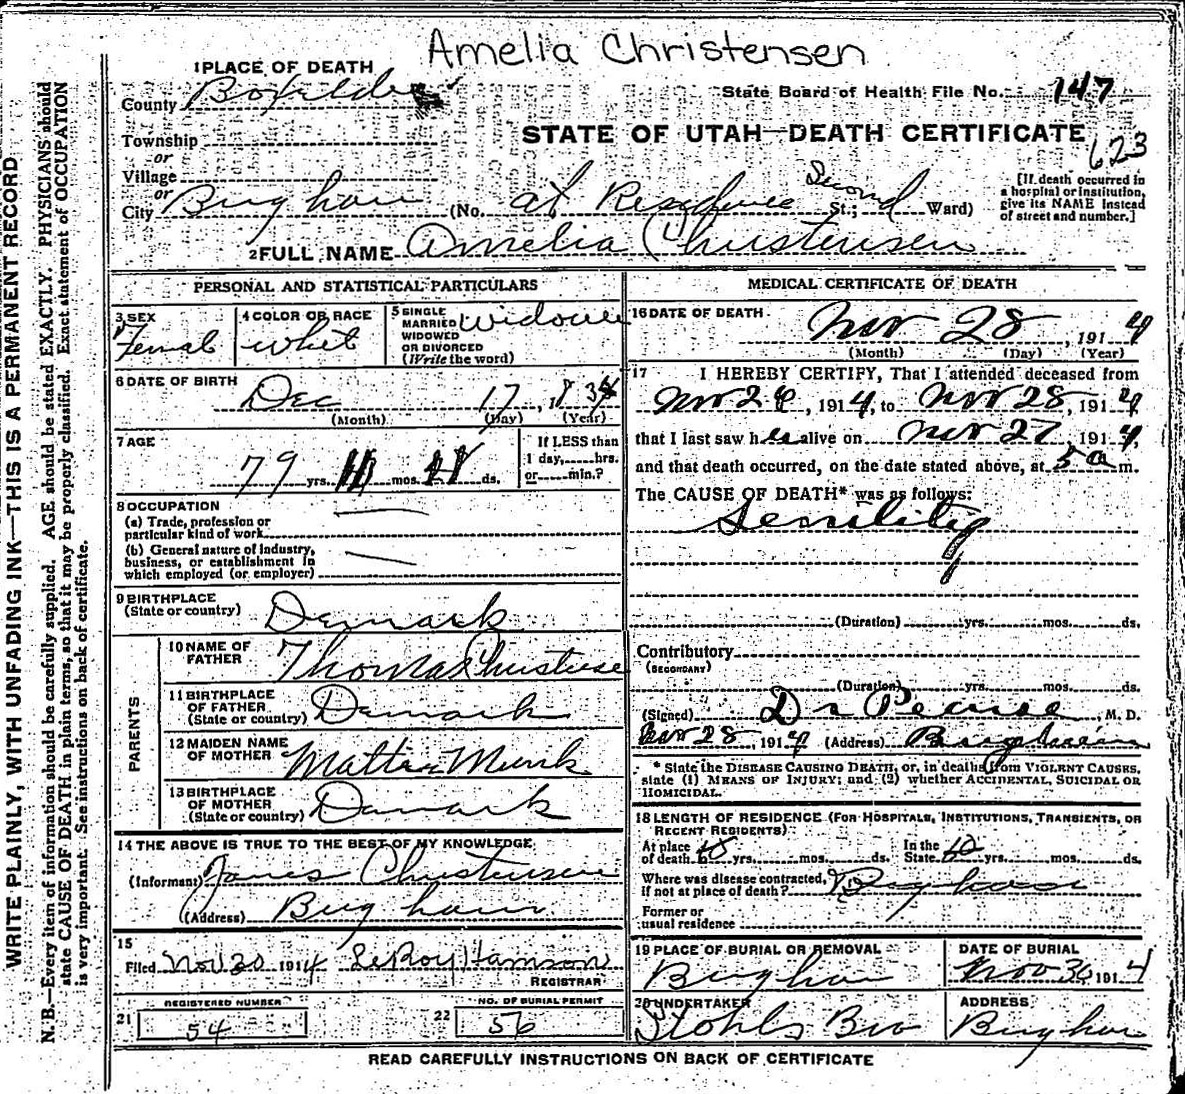 Amelia Christensen
1 PLACE OF DEATH
County Boxelder
State Board of Health File No. 147
Township
STATE OF UTAH—DEATH CERTIFICATE
623
or
Village
or
City Brigham (No. at Residence St.; Second Ward)
[If death occurred in
a hospital or institution,
give its NAME instead
of street and number.]
2 FULL NAME Amelia Christensen
PERSONAL AND STATISTICAL PARTICULARS
3 SEX
Femal
4 COLOR OR RACE
whit
5 SINGLE
MARRIED
WIDOWED
OR DIVORCED
(Write the word)
widow
6 DATE OF BIRTH
Dec 17, 183
(Month) (Day) (Year)
7 AGE
79 yrs. 11 mos. 11 ds.
If LESS than
1 day, hrs.
or min.?
8 OCCUPATION
(a) Trade, profession or
particular kind of work
(b) General nature of industry,
business, or establishment in
which employed (or employer)
9 BIRTHPLACE
(State or country) Denmark
PARENTS
10 NAME OF
FATHER Thomas Christense
11 BIRTHPLACE
OF FATHER
(State or country) Denmark
12 MAIDEN NAME
OF MOTHER Munk
13 BIRTHPLACE
OF MOTHER
(State or country) Danmark
14 THE ABOVE IS TRUE TO THE BEST OF MY KNOWLEDGE
(Informant) James Christensen
(Address) Brigham
15
Filed Nov 30 1914 LeRoy
REGISTRAR
REGISTERED NUMBER
21 54
NO. OF BURIAL PERMIT
22 56
MEDICAL CERTIFICATE OF DEATH
16 DATE OF DEATH
Nov 28, 1914
(Month) (Day) (Year)
17 I HEREBY CERTIFY, That I attended deceased from
Nov 26, 1914, to Nov 28, 1914
that I last saw her alive on Nov 27, 1914,
and that death occurred, on the date stated above, at 5 a m.
The CAUSE OF DEATH* was as follows:
Senility
(Duration) yrs. mos. ds.
Contributory
(SECONDARY)
(Duration) yrs. mos. ds.
(Signed) Dr Pearse, M. D.
Nov 28, 1914 (Address) Brigham
* State the DISEASE CAUSING DEATH, or, in deaths from VIOLENT CAUSES,
state (1) MEANS OF INJURY; and (2) whether ACCIDENTAL, SUICIDAL OR
HOMICIDAL.
18 LENGTH OF RESIDENCE (FOR HOSPITALS, INSTITUTIONS, TRANSIENTS, OR
RECENT RESIDENTS)
At place
of death yrs. mos. ds.
In the
State 60 yrs. mos. ds.
Where was disease contracted,
if not at place of death? Brigham
Former or
usual residence
19 PLACE OF BURIAL OR REMOVAL
Brigham
DATE OF BURIAL
Nov 30 1914
20 UNDERTAKER
Stohls Bro
ADDRESS
Brigham
READ CAREFULLY INSTRUCTIONS ON BACK OF CERTIFICATE
WRITE PLAINLY, WITH UNFADING INK—THIS IS A PERMANENT RECORD
N. B.—Every item of information should be carefully supplied. AGE should be stated EXACTLY. PHYSICIANS should
state CAUSE OF DEATH in plain terms, so that it may be properly classified. Exact statement of OCCUPATION
is very important. See instructions on back of certificate.